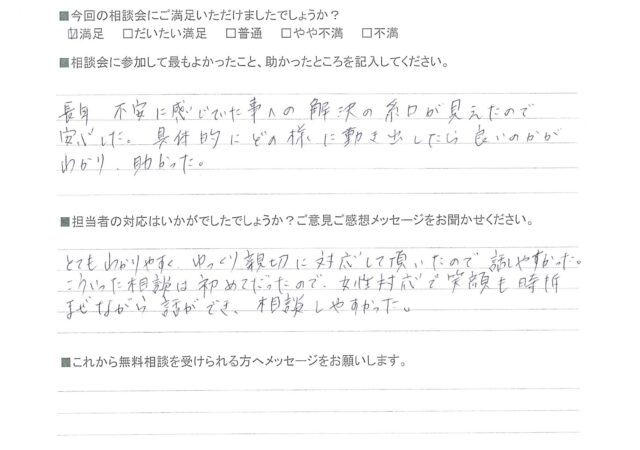 ■今回の相談会にご満足いただけましたでしょうか?
☑満足 □だいたい満足 □普通 □やや不満 □不満
■相談会に参加して最もよかったこと、助かったところを記入してください。
長年 不安に感じていた事への解決の糸口が見えたので
安心した。具体的にどの様に動き出したら良いのかが
わかり、助かった。
■担当者の対応はいかがでしたでしょうか?ご意見ご感想メッセージをお聞かせください。
とてもわかりやすく、ゆっくり親切に対応して頂いたので話しやすかった。
こういった相談は初めてだったので、女性対応で笑顔も時折
まぜながら話ができ、相談しやすかった。
■これから無料相談を受けられる方へメッセージをお願いします。